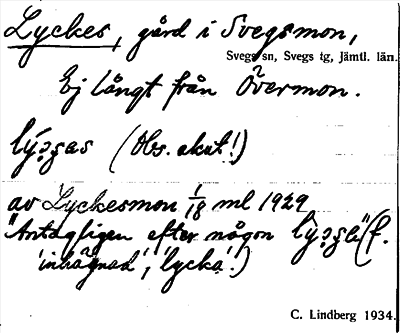 Lyckes, gård i Svegsmon,
Svegs sn, Svegs tg, Jämtl. län.
Ej långt från Övermon.
(Obs. akut!)
av Lyckesmon 1/18 ml 1929
"Antagligen efter någon (f.
'inhägnad', 'lycka'.)
C. Lindberg 1934.